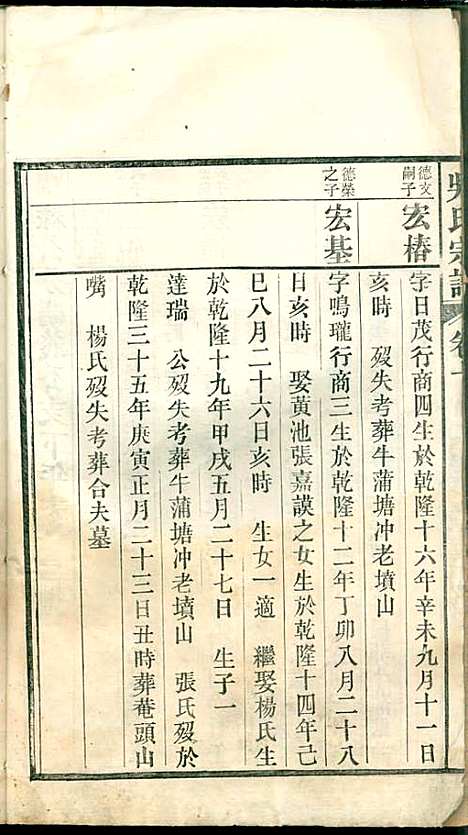 吳氏宗譜 卷一
德文
嗣子
宏椿
字日茂行商四生於乾隆十六年辛未九月十一日
亥時 歿失考葬牛蒲塘冲老墳山
德榮
之子
宏基
字鳴瓏行商三生於乾隆十二年丁卯八月二十八
日亥時 娶黃池張嘉謨之女生於乾隆十四年己
巳八月二十六日亥時 生女一適 繼娶楊氏生
於乾隆十九年甲戌五月二十七日 生子一
達瑞 公歿失考葬牛蒲塘冲老墳山 張氏歿於
乾隆三十五年庚寅正月二十三日丑時葬菴頭山
嘴 楊氏歿失考葬合夫墓